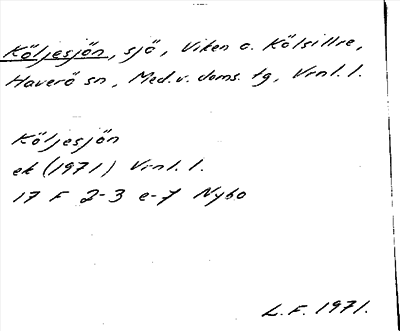 Köljesjön, sjö, Viken o. Kölsillre,
Haverö sn, Med.v. doms. tg, Vrnl. l.
Köljesjön
ek (1971) Vrnl. l.
17 F 2-3 e-f Nybo
L.F. 1971.